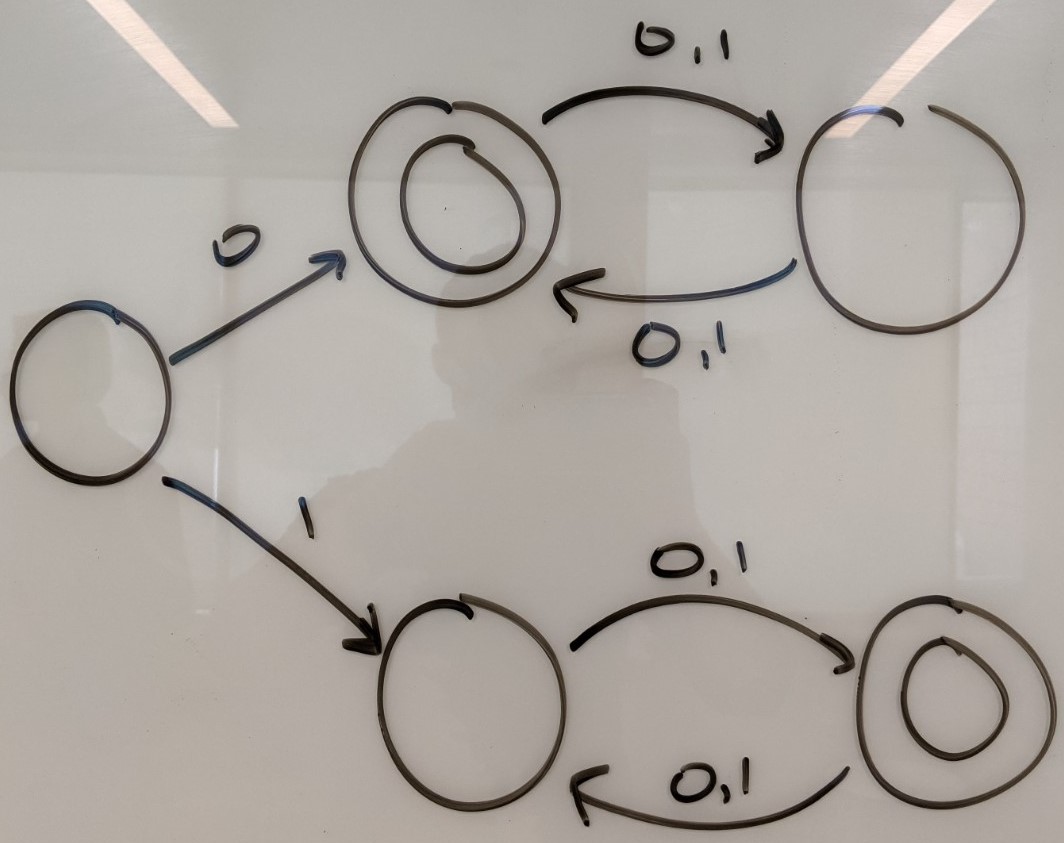 0,1
0
0,1
1
0,1
0,1